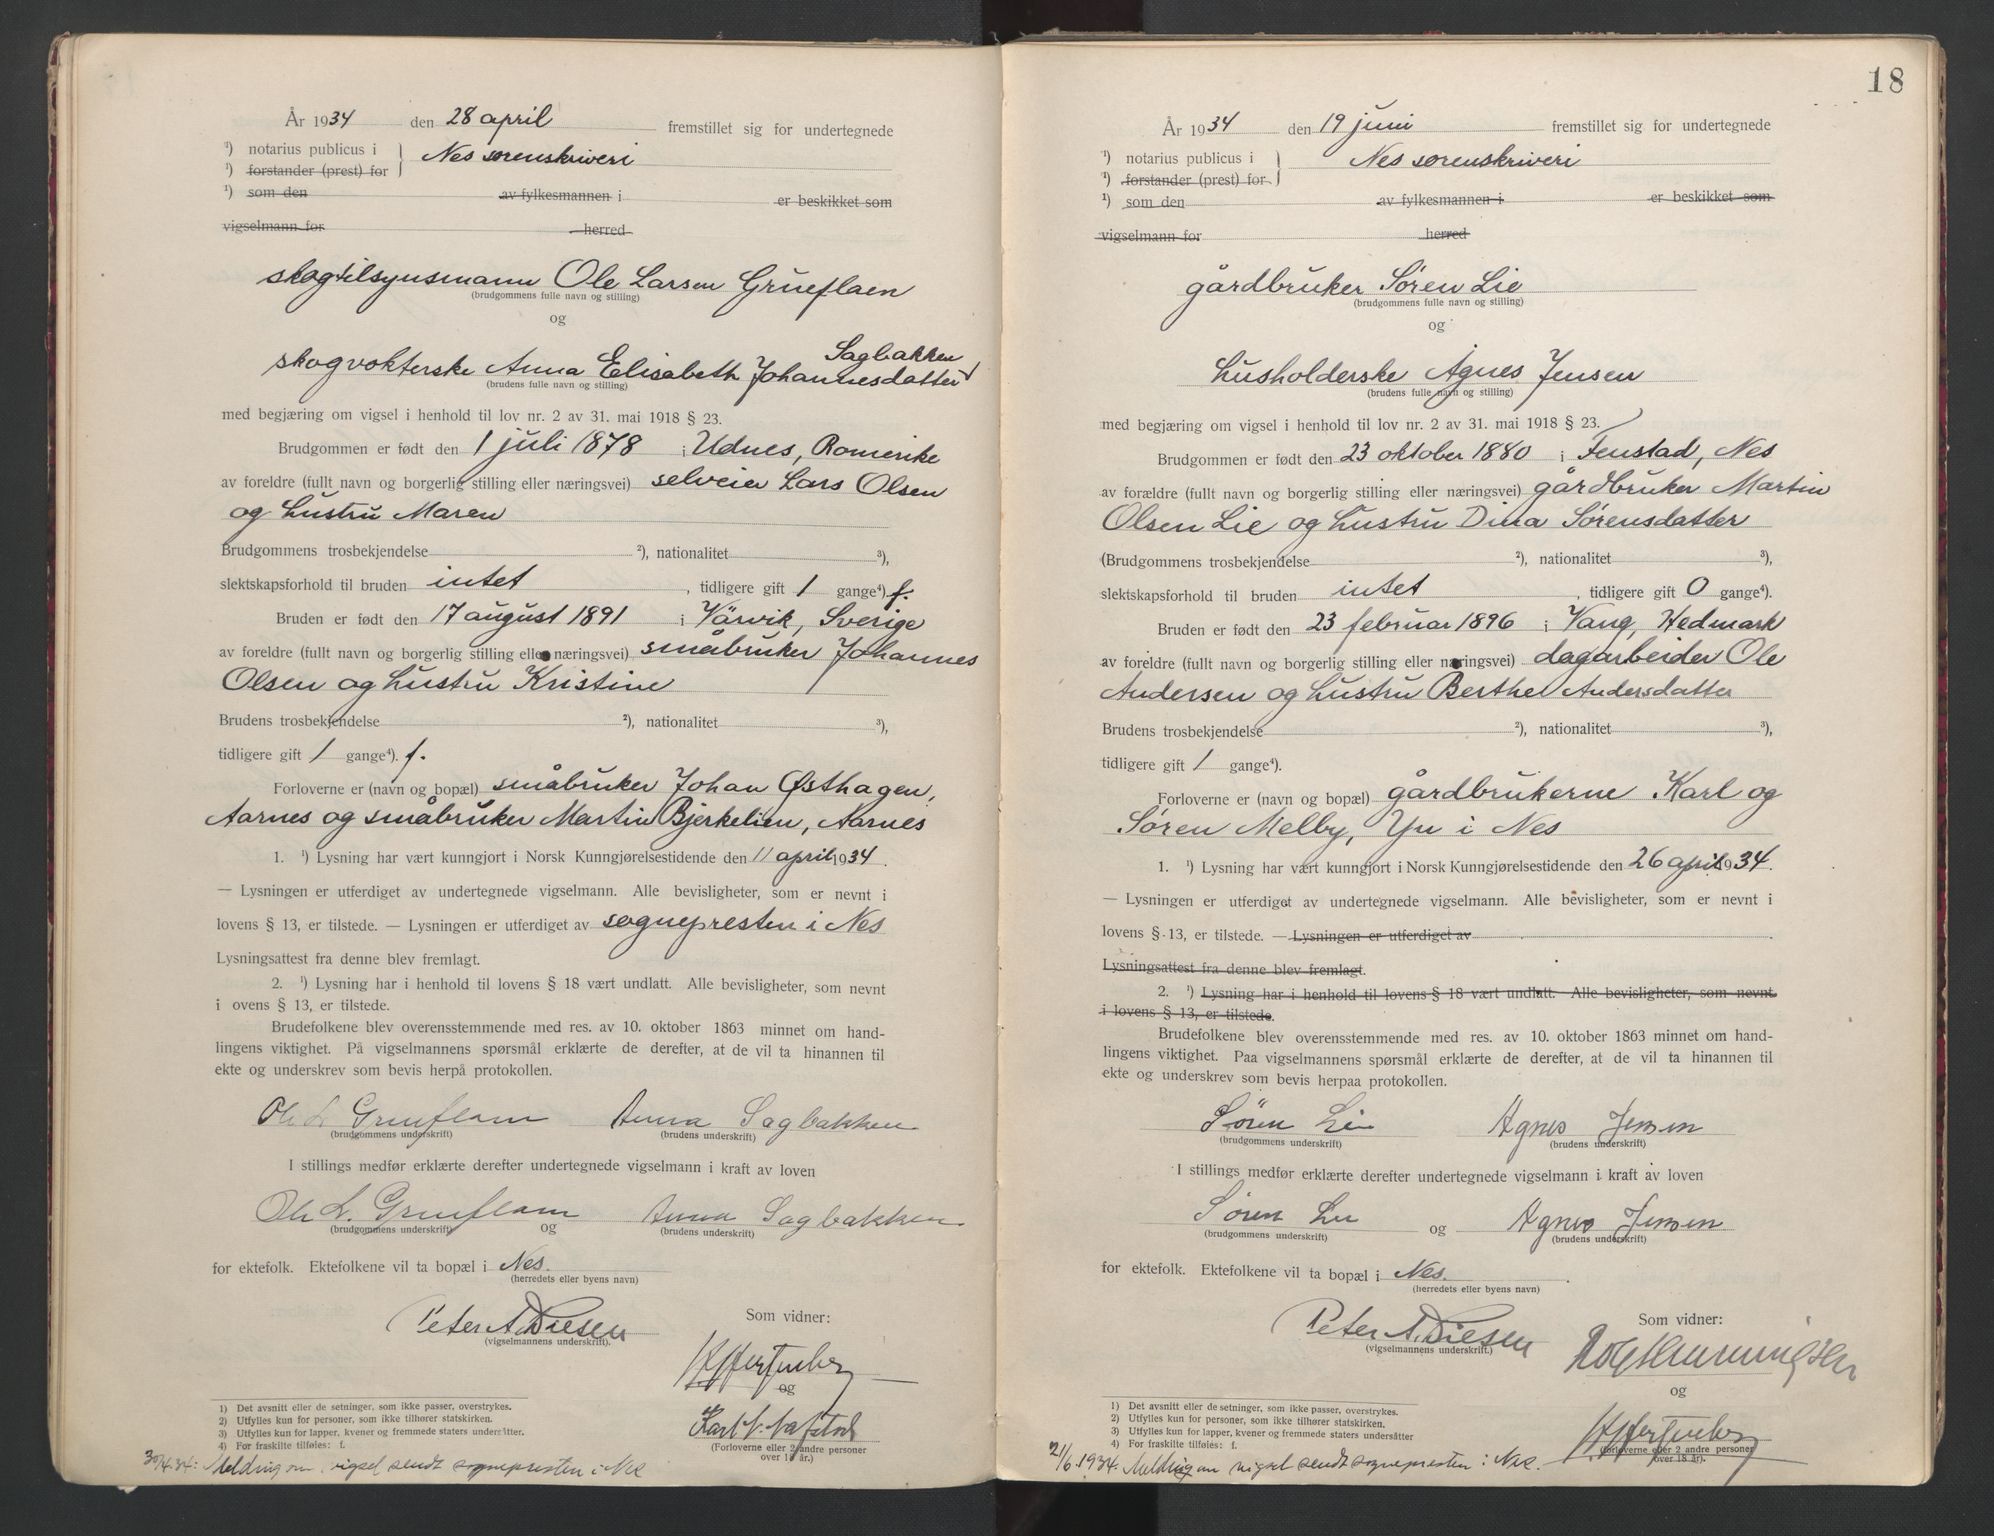 År 1934 den 28 april fremstillet sig for undertegnede
¹) notarius publicus i } Nes sorenskriveri
¹) forstander (prest) for
¹) som den av fylkesmannen i er beskikket som
vigselmann for herred
skogtilsynsmann Ole Larsen Grueflaen
(brudgommens fulle navn og stilling)
og
Sagbakken
skogvokterske Anna Elisabeth Johannesdatter
(brudens fulle navn og stilling)
med begjæring om vigsel i henhold til lov nr. 2 av 31. mai 1918 § 23.
Brudgommen er født den 1 juli 1878 i Udnes, Romerike
av foreldre (fullt navn og borgerlig stilling eller næringsvei) selveier Lars Olsen
og hustru Maren
Brudgommens trosbekjendelse ²), nationalitet ³),
slektskapsforhold til bruden intet, tidligere gift 1 gange⁴) f.
Bruden er født den 17 august 1891 i Värvik, Sverige
av foreldre (fullt navn og borgerlig stilling eller næringsvei) småbruker Johannes
Olsen og hustru Kristine
Brudens trosbekjendelse ²), nationalitet ³),
tidligere gift 1 gange⁴). f.
Forloverne er (navn og bopæl) småbruker Johan Østhagen,
Aarnes og småbruker Martin Bjerkelien, Aarnes
1. ¹) Lysning har vært kunngjort i Norsk Kunngjørelsestidende den 11 april 1934.
— Lysningen er utferdiget av undertegnede vigselmann. Alle bevisligheter, som er nevnt i
lovens § 13, er tilstede. — Lysningen er utferdiget av sognepresten i Nes
Lysningsattest fra denne blev fremlagt.
2. ¹) Lysning har i henhold til lovens § 18 vært undlatt. Alle bevisligheter, som nevnt
i ovens § 13, er tilstede.
Brudefolkene blev overensstemmende med res. av 10. oktober 1863 minnet om hand-
lingens viktighet. På vigselmannens spørsmål erklærte de derefter, at de vil ta hinannen til
ekte og underskrev som bevis herpå protokollen.
Ole L Grueflaen Anna Sagbakken
(brudgommens underskrift) (brudens underskrift)
I stillings medfør erklærte derefter undertegnede vigselmann i kraft av loven
Ole L. Grueflaen Anna Sagbakken
(brudgommens underskrift) og (brudens underskrift)
for ektefolk. Ektefolkene vil ta bopæl i Nes.
(herredets eller byens navn)
Peter A. Diesen
(vigselmannens underskrift).
Som vidner:
og
Karl
(Forloverne eller 2 andre personer
over 18 år.)
1) Det avsnitt eller de setninger, som ikke passer, overstrykes.
2) Utfylles kun for personer, som ikke tilhører statskirken.
3) Utfylles kun for lapper, kvener og fremmede staters undersåtter.
4) For fraskilte tilføies: f.
30/4.34: Melding om vigsel sendt sognepresten i Nes
18
År 1934 den 19 juni fremstillet sig for undertegnede
¹) notarius publicus i } Nes sorenskriveri
¹) forstander (prest) for
¹) som den av fylkesmannen i er beskikket som
vigselmann for herred
gårdbruker Søren Lie
(brudgommens fulle navn og stilling)
og
husholderske Agnes Jensen
(brudens fulle navn og stilling)
med begjæring om vigsel i henhold til lov nr. 2 av 31. mai 1918 § 23.
Brudgommen er født den 23 oktober 1880 i Fenstad, Nes
av forældre (fullt navn og borgerlig stilling eller næringsvei) gårdbruker Martin
Olsen Lie og hustru Dina Sørensdatter
(Brudgommens trosbekjendelse ²), nationalitet ³),
slektskapsforhold til bruden intet, tidligere gift 0 gange⁴).
Bruden er født den 23 februar 1896 i Vang, Hedmark
av foreldre (fullt navn og borgerlig stilling eller næringsvei) dagarbeider Ole
Andersen og hustru Berthe Andersdatter
Brudens trosbekjendelse ²), nationalitet ³),
tidligere gift 1 gange⁴).
Forloverne er (navn og bopæl) gårdbrukerne Karl og
Søren Melby, Yu i Nes
1. ¹) Lysning har vært kunngjort i Norsk Kunngjørelsestidende den 26 april 1934.
— Lysningen er utferdiget av undertegnede vigselmann. Alle bevisligheter, som er nevnt i
lovens § 13, er tilstede. — Lysningen er utferdiget av
Lysningsattest fra denne blev fremlagt.
2. ¹) Lysning har i henhold til lovens § 18 vært undlatt. Alle bevisligheter, som nevnt
i lovens § 13, er tilstede.
Brudefolkene blev overensstemmende med res. av 10. oktober 1863 minnet om hand-
lingens viktighet. Paa vigselmannens spørsmål erklærte de derefter, at de vil ta hinannen til
ekte og underskrev som bevis herpaa protokollen.
Søren Lie Agnes Jensen
(brudgommens underskrift) (brudens underskrift)
I stillings medfør erklærte derefter undertegnede vigselmann i kraft av loven
Søren Lie Agnes Jensen
(brudgommens underskrift) og (brudens underskrift)
for ektefolk. Ektefolkene vil ta bopæl i Nes.
(herredets eller byens navn)
Peter A. Diesen
(vigselmannens underskrift.)
Som vidner:
og
(forloverne eller 2 andre personer
over 18 år).
1) Det avsnitt eller de setninger, som ikke passer, overstrykes.
2) Utfylles kun for personer, som ikke tilhører statskirken.
3) Utfylles kun for lapper, kvener og fremmede staters undersåtter
4) For fraskilte tilføies: f.
21/6.1934. Melding om vigsel sendt sognepresten i Nes.